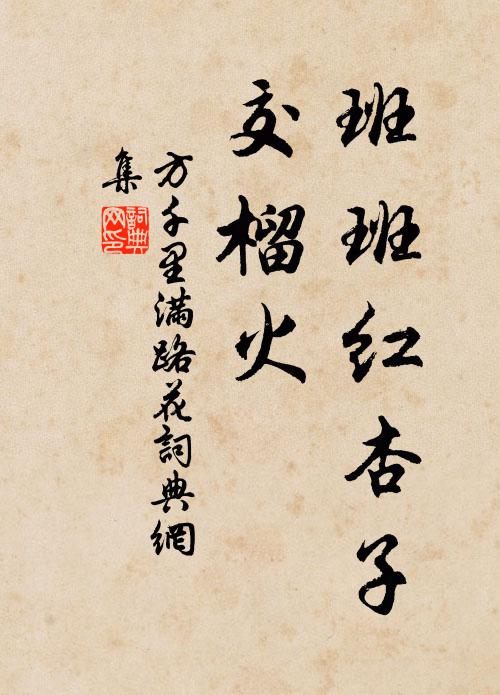 班班红杏子
交榴火
方千里满路花詞典網
集
詞典
网印